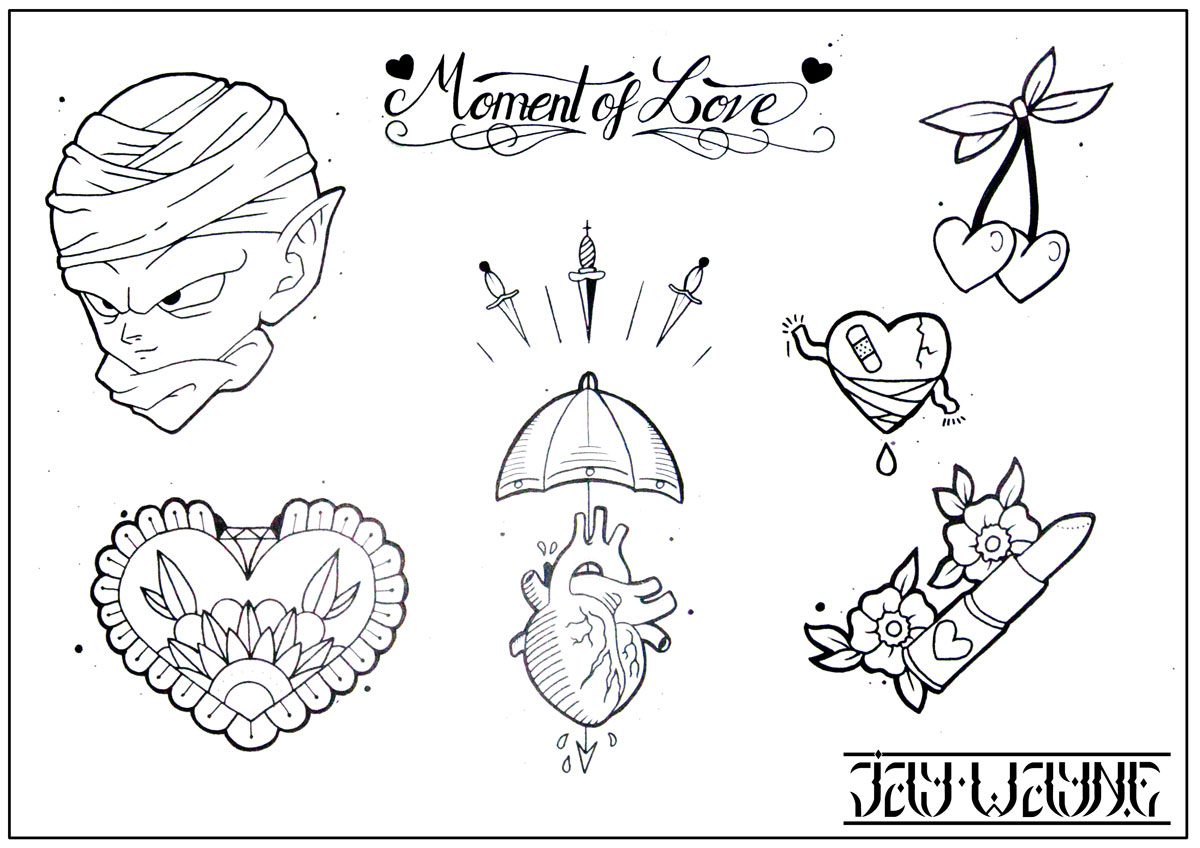 Moment of Love
JAY·WAYNE